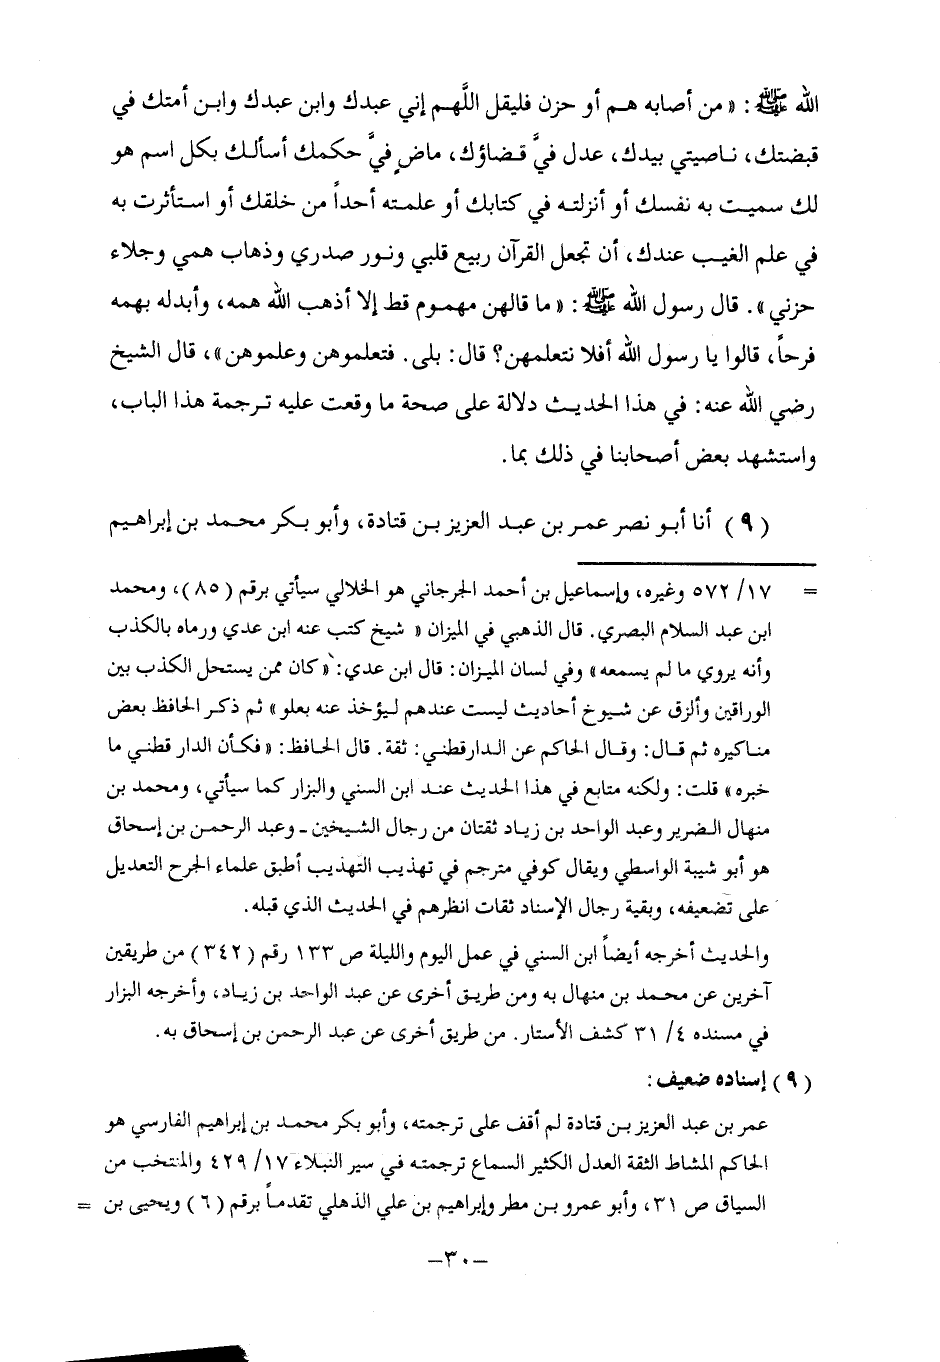 الله ﷺ: « من أصابه هم أو حزن فليقل اللَّهم إني عبدك وابن عبدك وابن أمتك في
قبضتك، ناصيتي بيدك، عدل فيَّ قضاؤك، ماضٍ فيَّ حكمك أسألك بكل اسم هو
لك سميت به نفسك أو أنزلته في كتابك أو علمته أحداً من خلقك أو استأثرت به
في علم الغيب عندك، أن تجعل القرآن ربيع قلبي ونور صدري وذهاب همي وجلاء
حزني ». قال رسول الله ﷺ: « ما قالهن مهموم قط إلا أذهب الله همه، وأبدله بهمه
فرحاً، قالوا يا رسول الله أفلا نتعلمهن؟ قال: بلى. فتعلموهن وعلموهن »، قال الشيخ
رضي الله عنه: في هذا الحديث دلالة على صحة ما وقعت عليه ترجمة هذا الباب،
واستشهد بعض أصحابنا في ذلك بما.
(٩) أنا أبو نصر عمر بن عبد العزيز بن قتادة، وأبو بكر محمد بن إبراهيم
= ١٧/ ٥٧٢ وغيره، وإسماعيل بن أحمد الجرجاني هو الخلالي سيأتي برقم (٨٥)، ومحمد
ابن عبد السلام البصري. قال الذهبي في الميزان « شيخ كتب عنه ابن عدي ورماه بالكذب
وأنه يروي ما لم يسمعه » وفي لسان الميزان: قال ابن عدي: « كان ممن يستحل الكذب بين
الوراقين وألزق عن شيوخ أحاديث ليست عندهم ليؤخذ عنه بعلو » ثم ذكر الحافظ بعض
مناكيره ثم قال: وقال الحاكم عن الدارقطني: ثقة. قال الحافظ: « فكأن الدار قطني ما
خبره » قلت: ولكنه متابع في هذا الحديث عند ابن السني والبزار كما سيأتي، ومحمد بن
منهال الضرير وعبد الواحد بن زياد ثقتان من رجال الشيخين ـ وعبد الرحمن بن إسحاق
هو أبو شيبة الواسطي ويقال كوفي مترجم في تهذيب التهذيب أطبق علماء الجرح التعديل
على تضعيفه، وبقية رجال الإسناد ثقات انظرهم في الحديث الذي قبله.
والحديث أخرجه أيضاً ابن السني في عمل اليوم والليلة ص ١٣٣ رقم (٣٤٢) من طريقين
آخرين عن محمد بن منهال به ومن طريق أخرى عن عبد الواحد بن زياد، وأخرجه البزار
في مسنده ٤/ ٣١ كشف الأستار. من طريق أخرى عن عبد الرحمن بن إسحاق به.
(٩) إسناده ضعيف:
عمر بن عبد العزيز بن قتادة لم أقف على ترجمته، وأبو بكر محمد بن إبراهيم الفارسي هو
الحاكم المشاط الثقة العدل الكثير السماع ترجمته في سير النبلاء ١٧/ ٤٢٩ والمنتخب من
السياق ص ٣١، وأبو عمرو بن مطر وإبراهيم بن علي الذهلي تقدماً برقم (٦) ويحيى بن =
ـ ٣٠ ـ